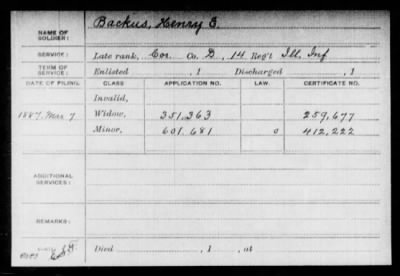 NAME OF SOLDIER: Backus, Henry E.
SERVICE: Late rank, Cor. Co. D, 14 Reg't Ill. Inf
TERM OF SERVICE: Enlisted , 1 Discharged , 1
DATE OF FILING. CLASS APPLICATION NO. LAW. CERTIFICATE NO.
Invalid,
1887, Mar 7 Widow, 351,363 259,677
Minor, 601,681 0 412,222
ADDITIONAL SERVICES:
REMARKS:
Died , 1 , at